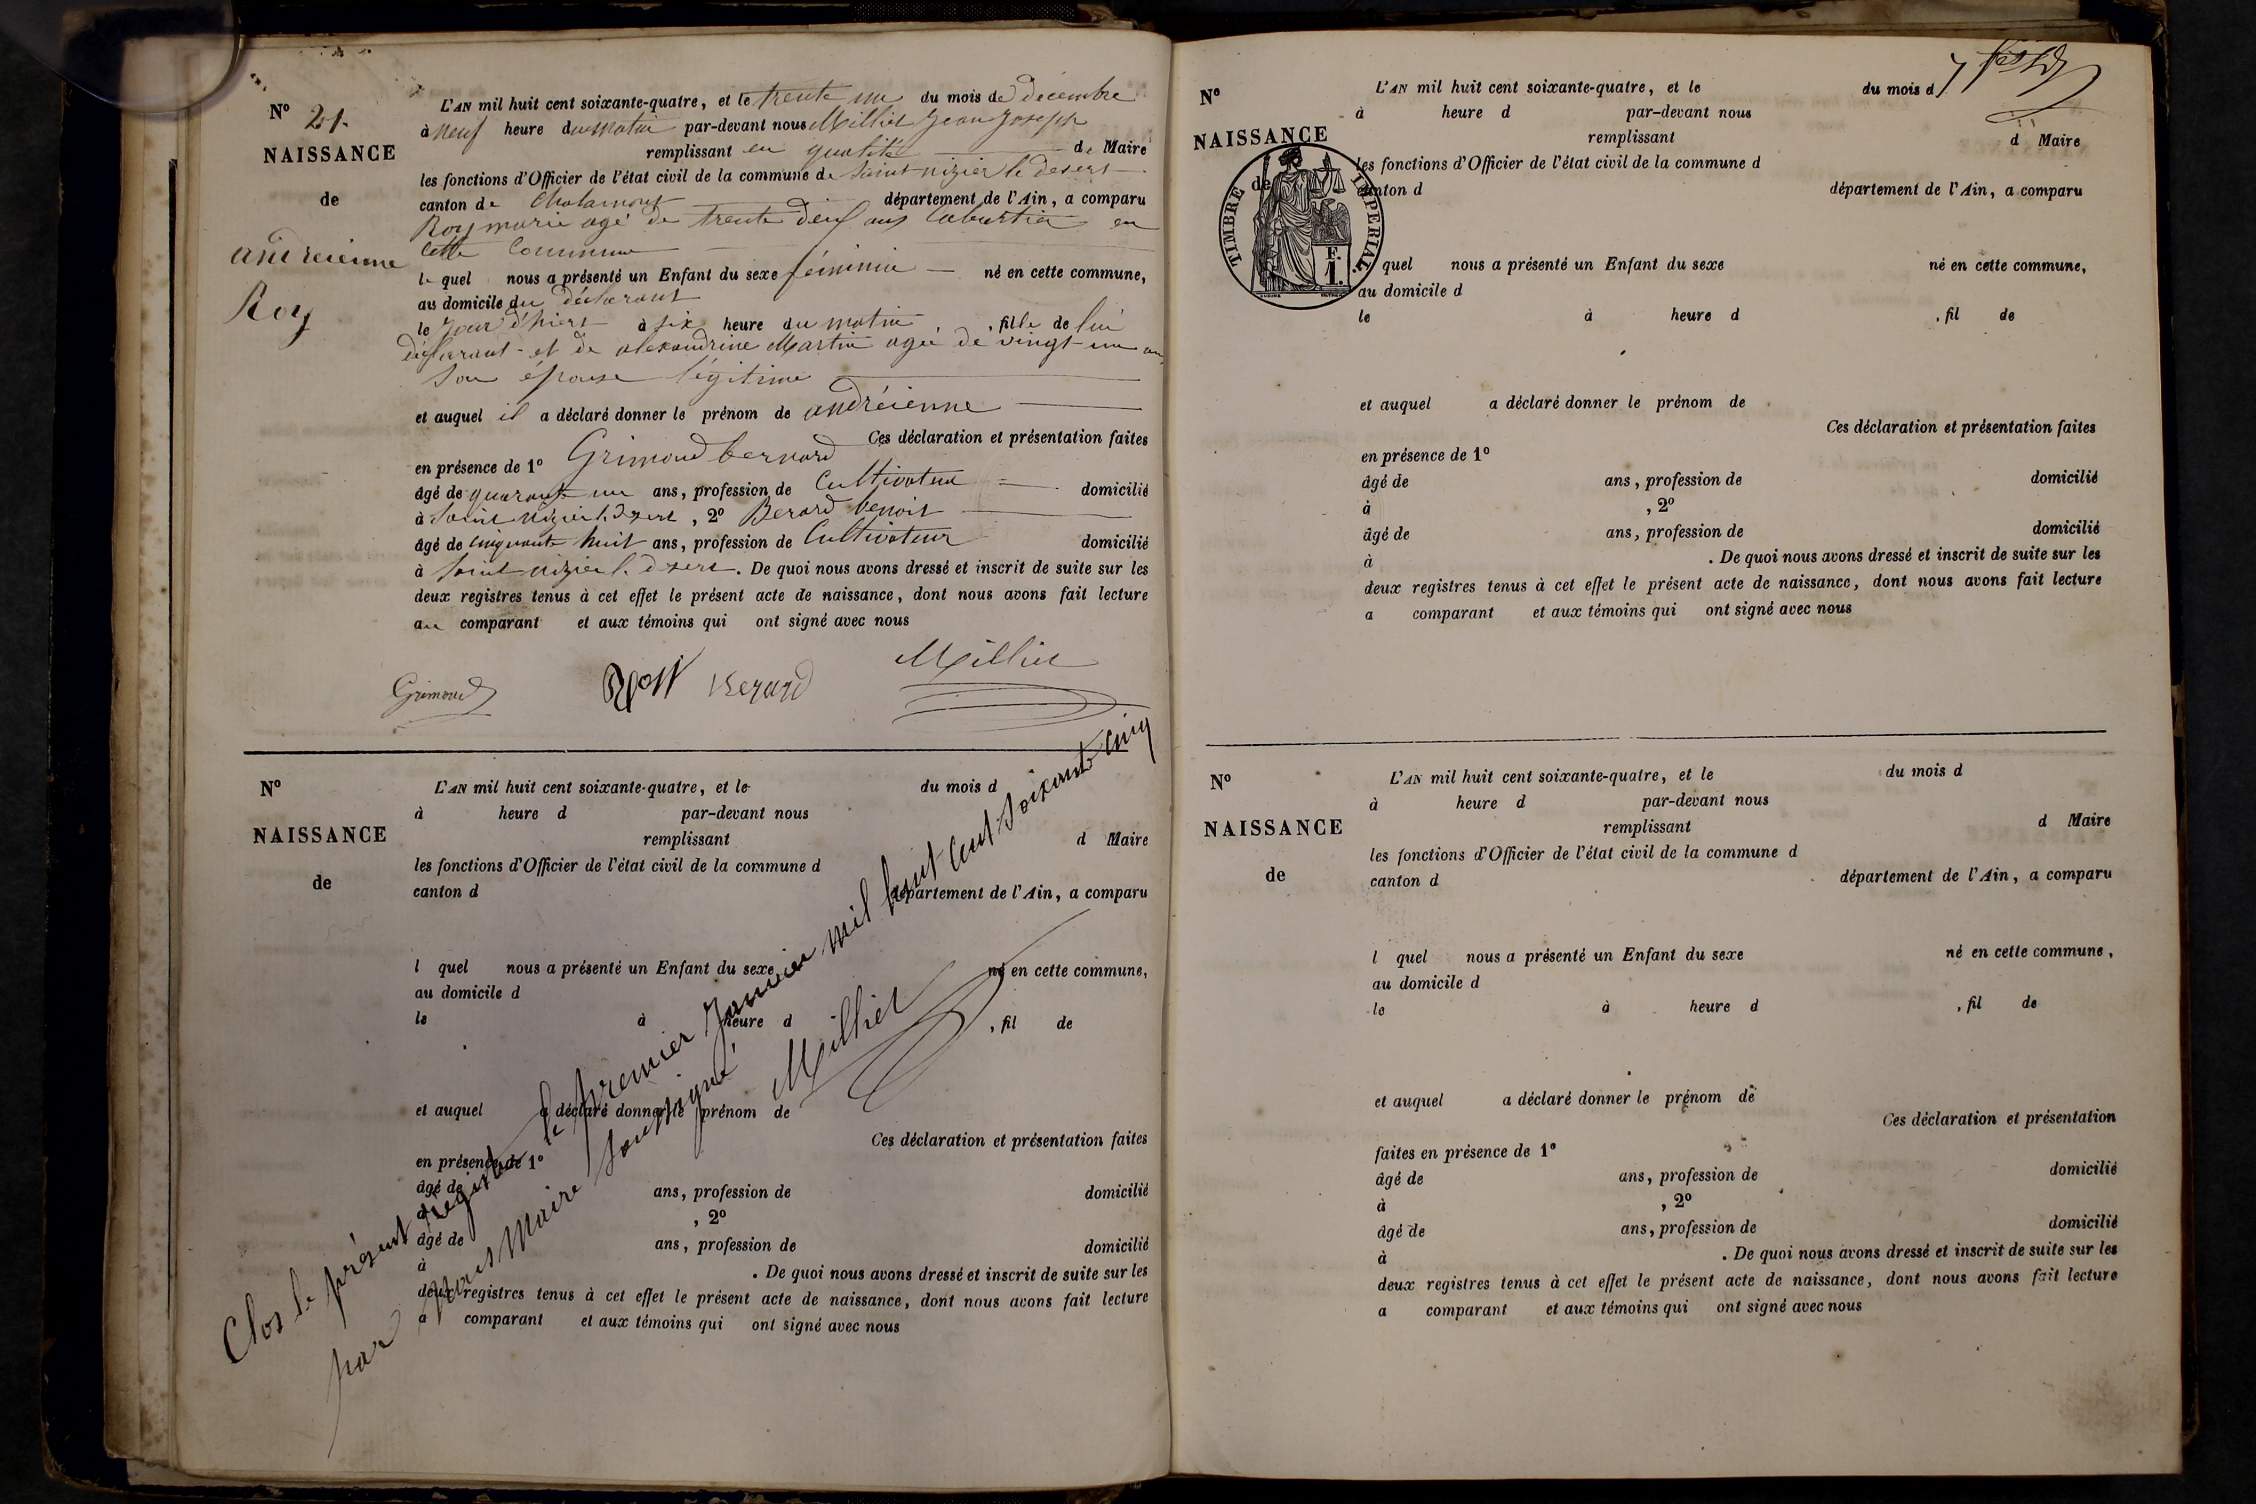 N° 21.
NAISSANCE
de
andreienne
Roy
L'AN mil huit cent soixante-quatre, et le trente un du mois de décembre
à neuf heure du matin par-devant nous Milliet Jean Joseph
remplissant en qualité de Maire
les fonctions d'Officier de l'état civil de la commune de Saint nizier le desert
canton de Chalamont département de l'Ain, a comparu
Roy marie agé de trente deux ans en
cette Commune
le quel nous a présenté un Enfant du sexe féminin né en cette commune,
au domicile du déclarant
le jour d'hiert à six heure du matin, fille de lui
déclarant et de alexandrine Martin agée de vingt un ans
son épouse légitime
et auquel il a déclaré donner le prénom de andréienne
Ces déclaration et présentation faites
en présence de 1° Grimoud bernard
âgé de quarante un ans, profession de Cultivateur domicilié
à Saint nizier le desert, 2° Berard benoit
âgé de cinquante huit ans, profession de Cultivateur domicilié
à Saint nizier le desert. De quoi nous avons dressé et inscrit de suite sur les
deux registres tenus à cet effet le présent acte de naissance, dont nous avons fait lecture
au comparant et aux témoins qui ont signé avec nous
Milliet
Grimoud Roy Berard
N°
NAISSANCE
de
L'AN mil huit cent soixante-quatre, et le du mois d
à heure d par-devant nous
remplissant d Maire
les fonctions d'Officier de l'état civil de la commune d
canton d département de l'Ain, a comparu
l quel nous a présenté un Enfant du sexe né en cette commune,
au domicile d
le à heure d , fil de
et auquel a déclaré donner le prénom de
Ces déclaration et présentation faites
en présence de 1°
âgé de ans, profession de domicilié
à , 2°
âgé de ans, profession de domicilié
à . De quoi nous avons dressé et inscrit de suite sur les
deux registres tenus à cet effet le présent acte de naissance, dont nous avons fait lecture
a comparant et aux témoins qui ont signé avec nous
Clos le présent régistre le premier Janvier mil huit cent soixante cinq
par nous Maire soussigné
Milliet
N°
NAISSANCE
de
TIMBRE IMPERIAL.
F.
1.
L'AN mil huit cent soixante-quatre, et le du mois d
à heure d par-devant nous
remplissant d Maire
les fonctions d'Officier de l'état civil de la commune d
canton d département de l'Ain, a comparu
quel nous a présenté un Enfant du sexe né en cette commune,
au domicile d
le à heure d , fil de
et auquel a déclaré donner le prénom de
Ces déclaration et présentation faites
en présence de 1°
âgé de ans, profession de domicilié
à , 2°
âgé de ans, profession de domicilié
à . De quoi nous avons dressé et inscrit de suite sur les
deux registres tenus à cet effet le présent acte de naissance, dont nous avons fait lecture
a comparant et aux témoins qui ont signé avec nous
N°
NAISSANCE
de
L'AN mil huit cent soixante-quatre, et le du mois d
à heure d par-devant nous
remplissant d Maire
les fonctions d'Officier de l'état civil de la commune d
canton d département de l'Ain, a comparu
l quel nous a présenté un Enfant du sexe né en cette commune,
au domicile d
le à heure d , fil de
et auquel a déclaré donner le prénom de
Ces déclaration et présentation
faites en présence de 1°
âgé de ans, profession de domicilié
à , 2°
âgé de ans, profession de domicilié
à . De quoi nous avons dressé et inscrit de suite sur les
deux registres tenus à cet effet le présent acte de naissance, dont nous avons fait lecture
a comparant et aux témoins qui ont signé avec nous